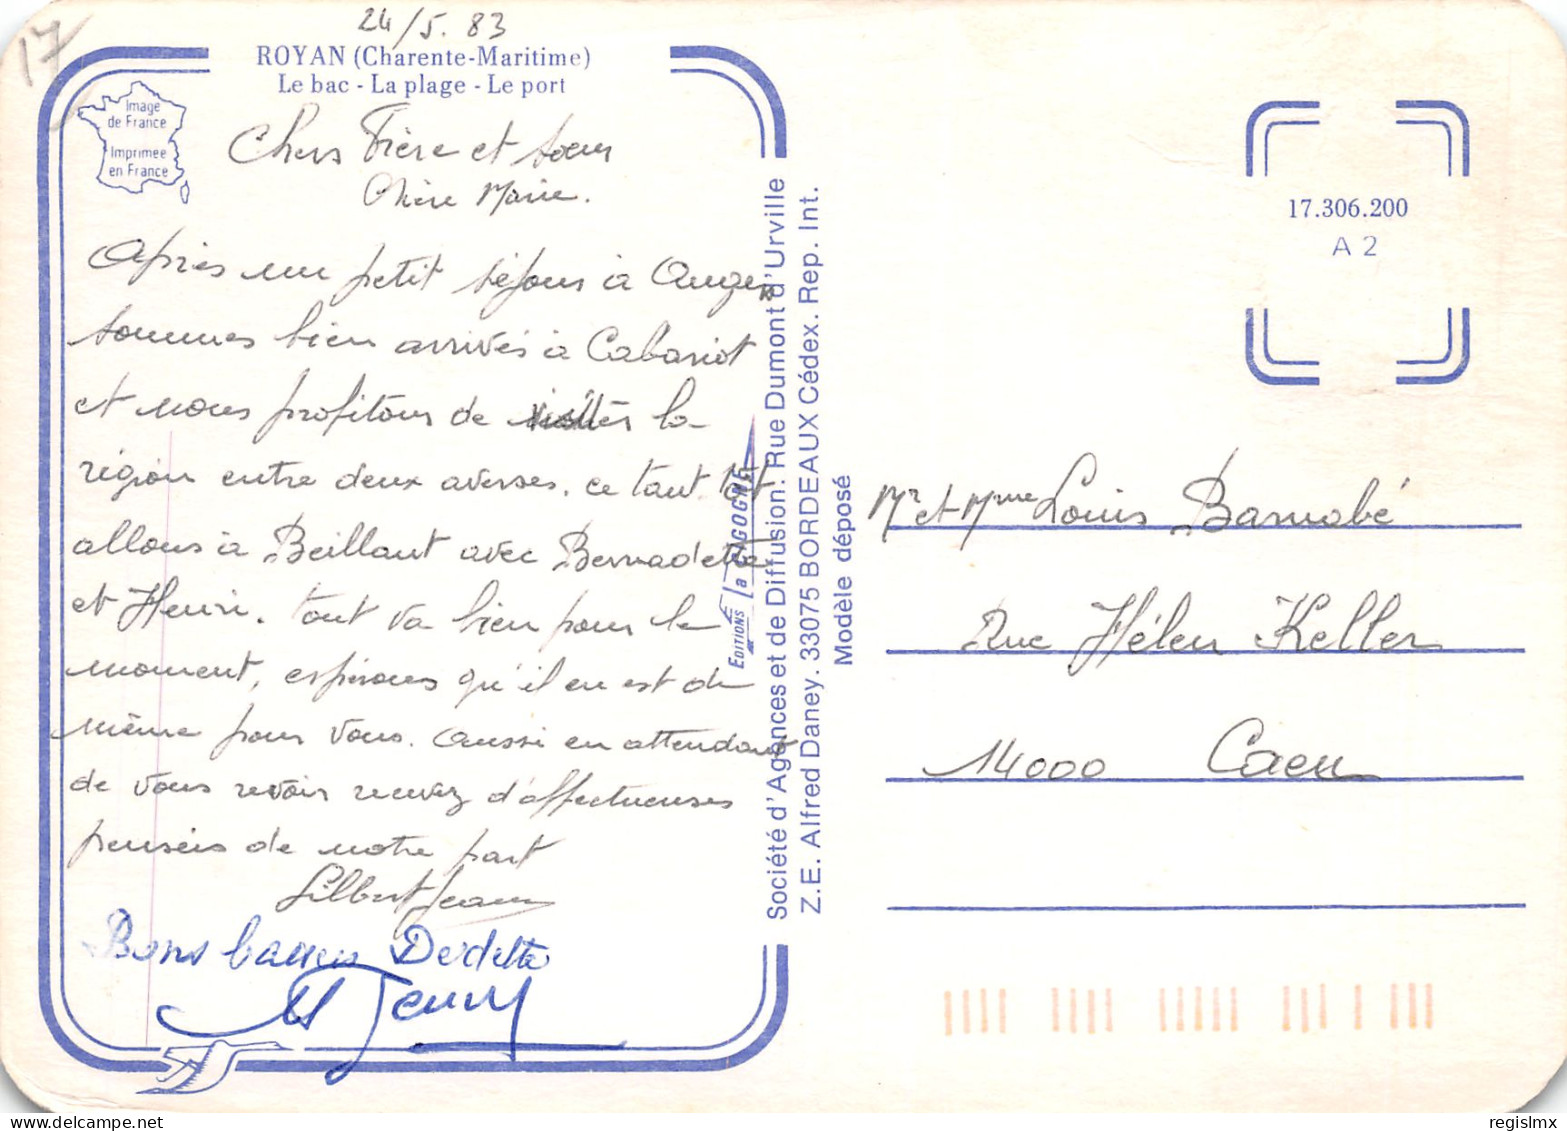 17
24/5.83
ROYAN (Charente-Maritime)
Le bac - La plage - Le port
Image
de France
Imprimée
en France
Chers Frère et soeur
Chère Marie.
Après un petit séjour à Angers
sommes bien arrivés à Cabariot
et nous profitons de visiter la
région entre deux averses. ce tantôt
allons à Beillant avec Bernadette
et Henri. tout va bien pour le
moment, espérons qu'il en est de
même pour vous. Aussi en attendant
de vous revoir recevez d'affectueuses
pensées de notre part
Gilbert Jeanne
Bons baisers Dedette
et
EDITIONS La CIGOGNE
Société d'Agences et de Diffusion: Rue Dumont d'Urville
Z.E. Alfred Daney. 33075 BORDEAUX Cédex. Rep. Int.
Modèle déposé
17.306.200
A 2
Mr et Mme Louis Barnabé
Rue Hélen Keller
14000 Caen
regislmx